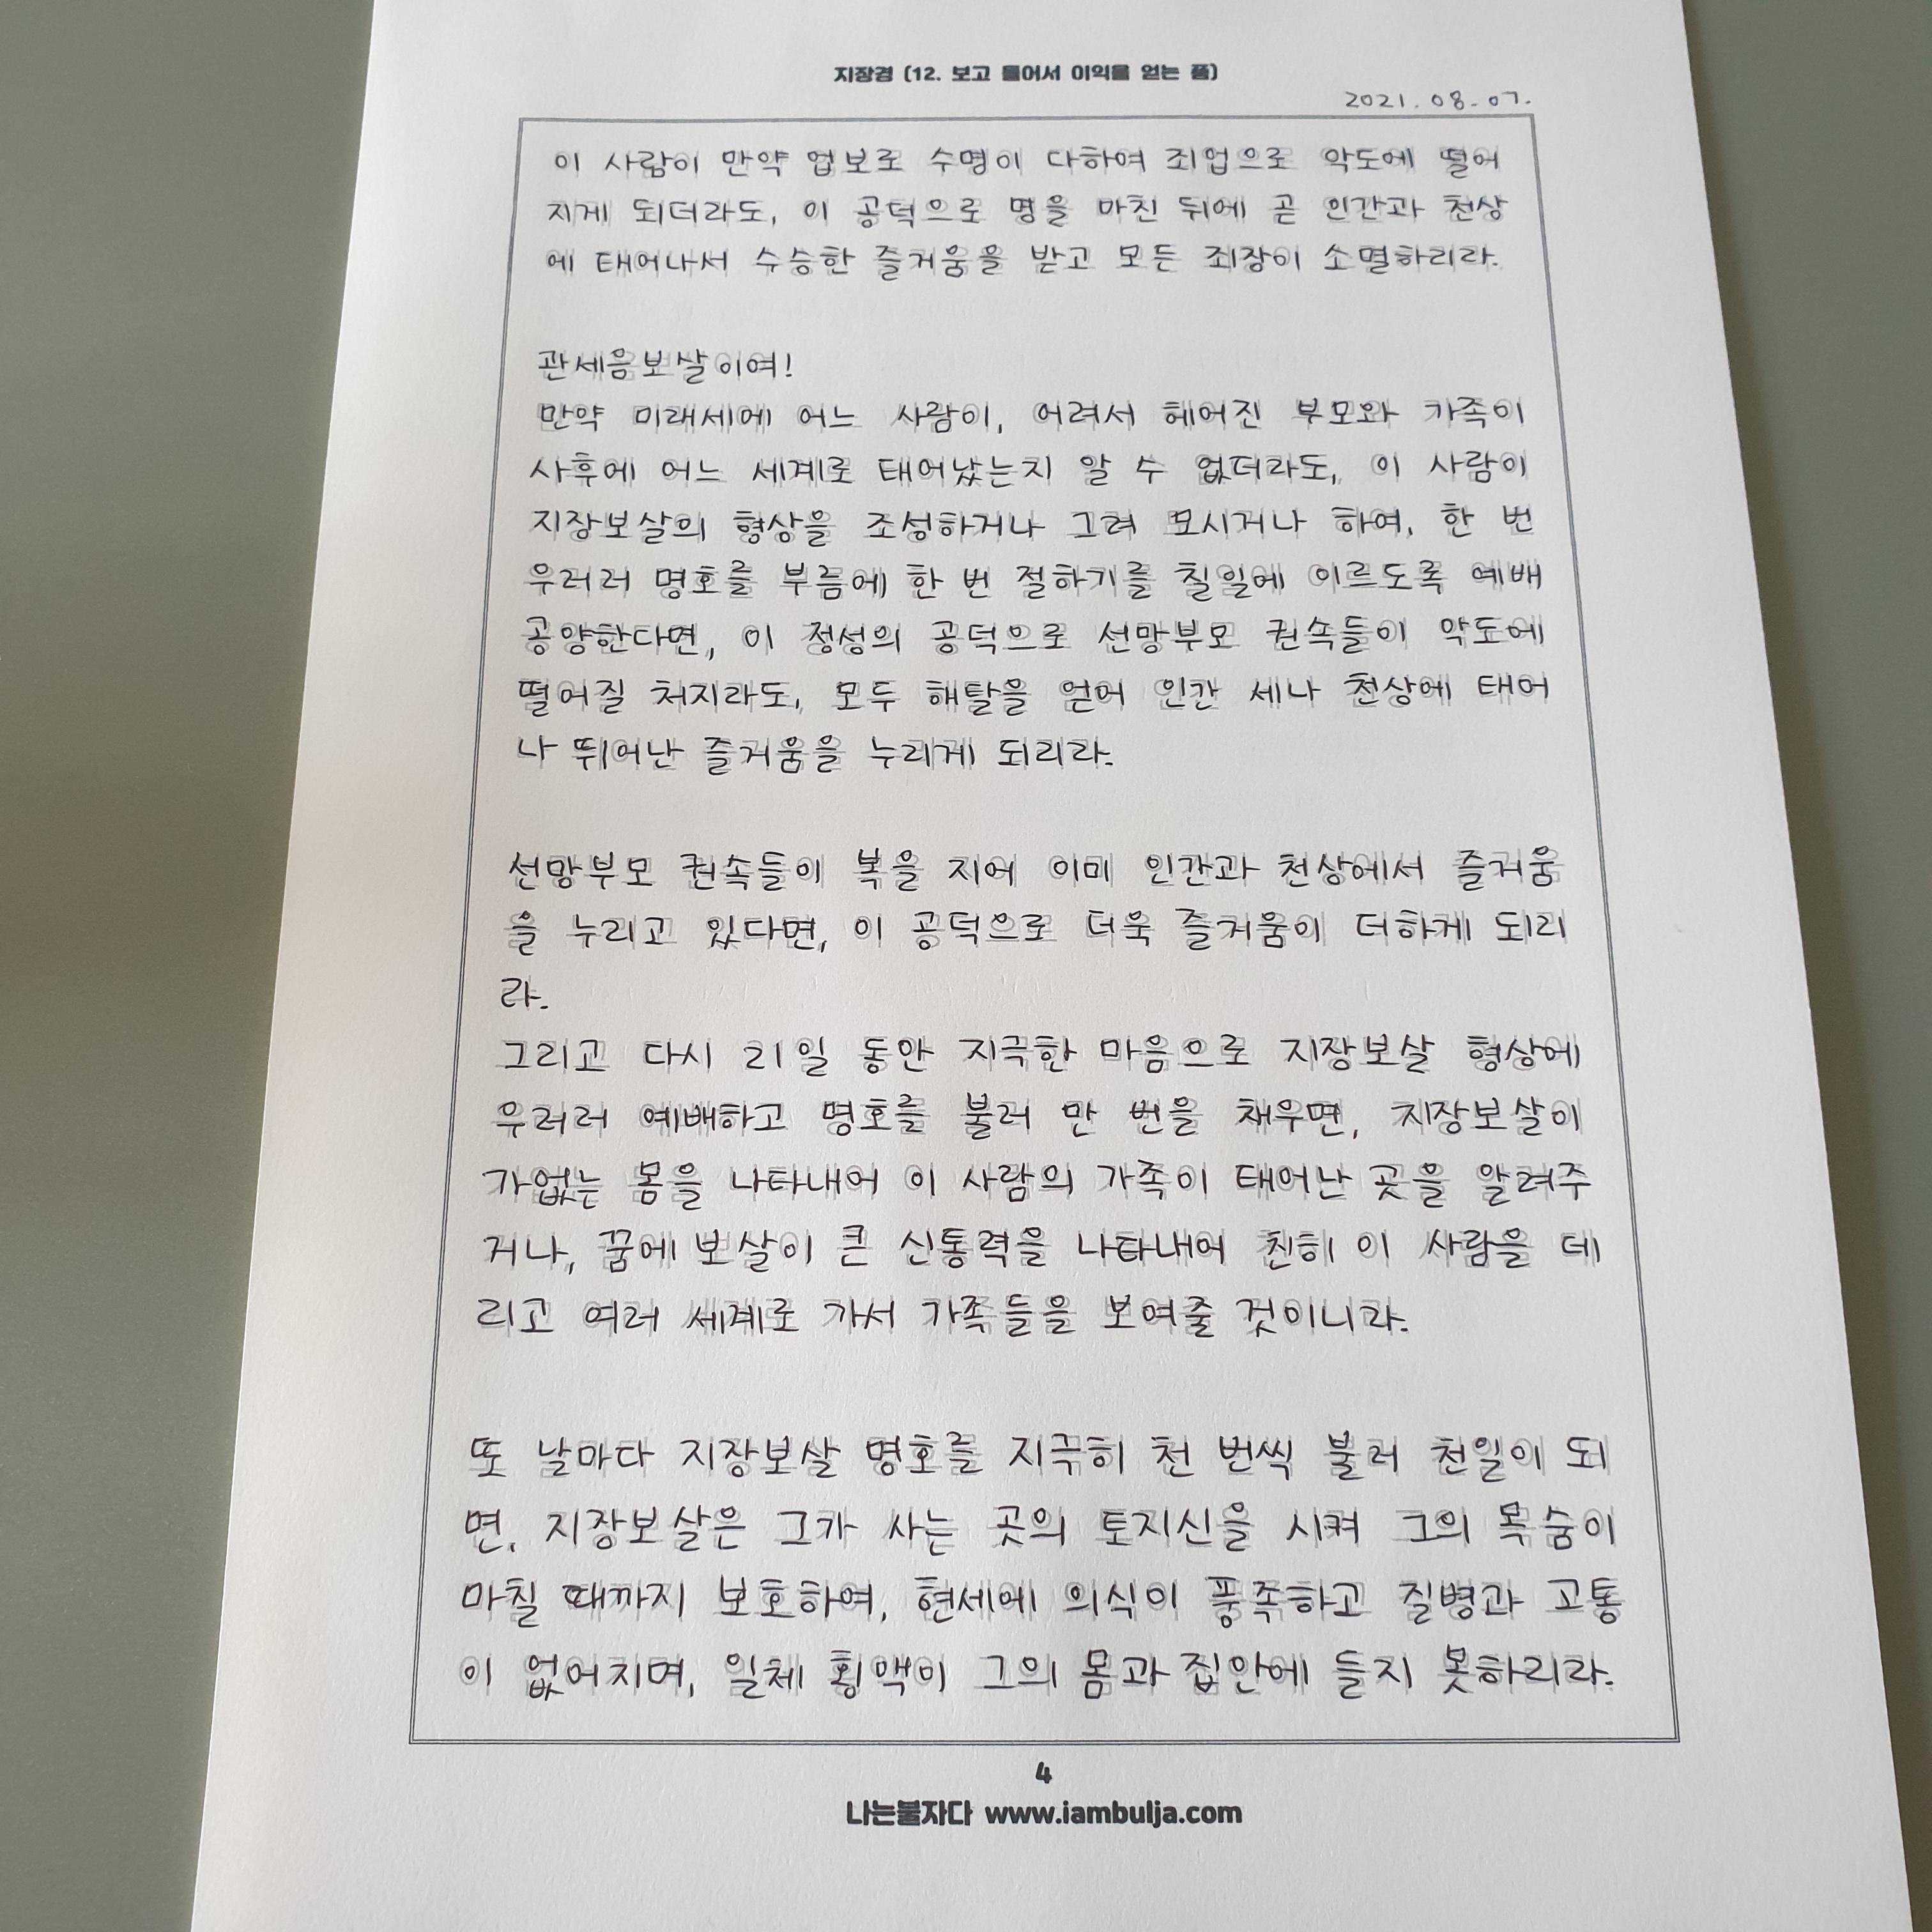 지장경 (12. 보고 들어서 이익을 얻는 품)
2021. 08. 07.
이 사람이 만약 업보로 수명이 다하여 죄업으로 악도에 떨어
지게 되더라도, 이 공덕으로 명을 마친 뒤에 곧 인간과 천상
에 태어나서 수승한 즐거움을 받고 모든 죄장이 소멸하리라.
관세음보살이여!
만약 미래세에 어느 사람이, 어려서 헤어진 부모와 가족이
사후에 어느 세계로 태어났는지 알 수 없더라도, 이 사람이
지장보살의 형상을 조성하거나 그려 모시거나 하여, 한 번
우러러 명호를 부름에 한 번 절하기를 칠일에 이르도록 예배
공양한다면, 이 정성의 공덕으로 선망부모 권속들이 악도에
떨어질 처지라도, 모두 해탈을 얻어 인간 세나 천상에 태어
나 뛰어난 즐거움을 누리게 되리라.
선망부모 권속들이 복을 지어 이미 인간과 천상에서 즐거움
을 누리고 있다면, 이 공덕으로 더욱 즐거움이 더하게 되리
라.
그리고 다시 21일 동안 지극한 마음으로 지장보살 형상에
우러러 예배하고 명호를 불러 만 번을 채우면, 지장보살이
가없는 몸을 나타내어 이 사람의 가족이 태어난 곳을 알려주
거나, 꿈에 보살이 큰 신통력을 나타내어 친히 이 사람을 데
리고 여러 세계로 가서 가족들을 보여줄 것이니라.
또 날마다 지장보살 명호를 지극히 천 번씩 불러 천일이 되
면, 지장보살은 그가 사는 곳의 토지신을 시켜 그의 목숨이
마칠 때까지 보호하여, 현세에 의식이 풍족하고 질병과 고통
이 없어지며, 일체 횡액이 그의 몸과 집안에 들지 못하리라.
4
나는불자다 www.iambulja.com